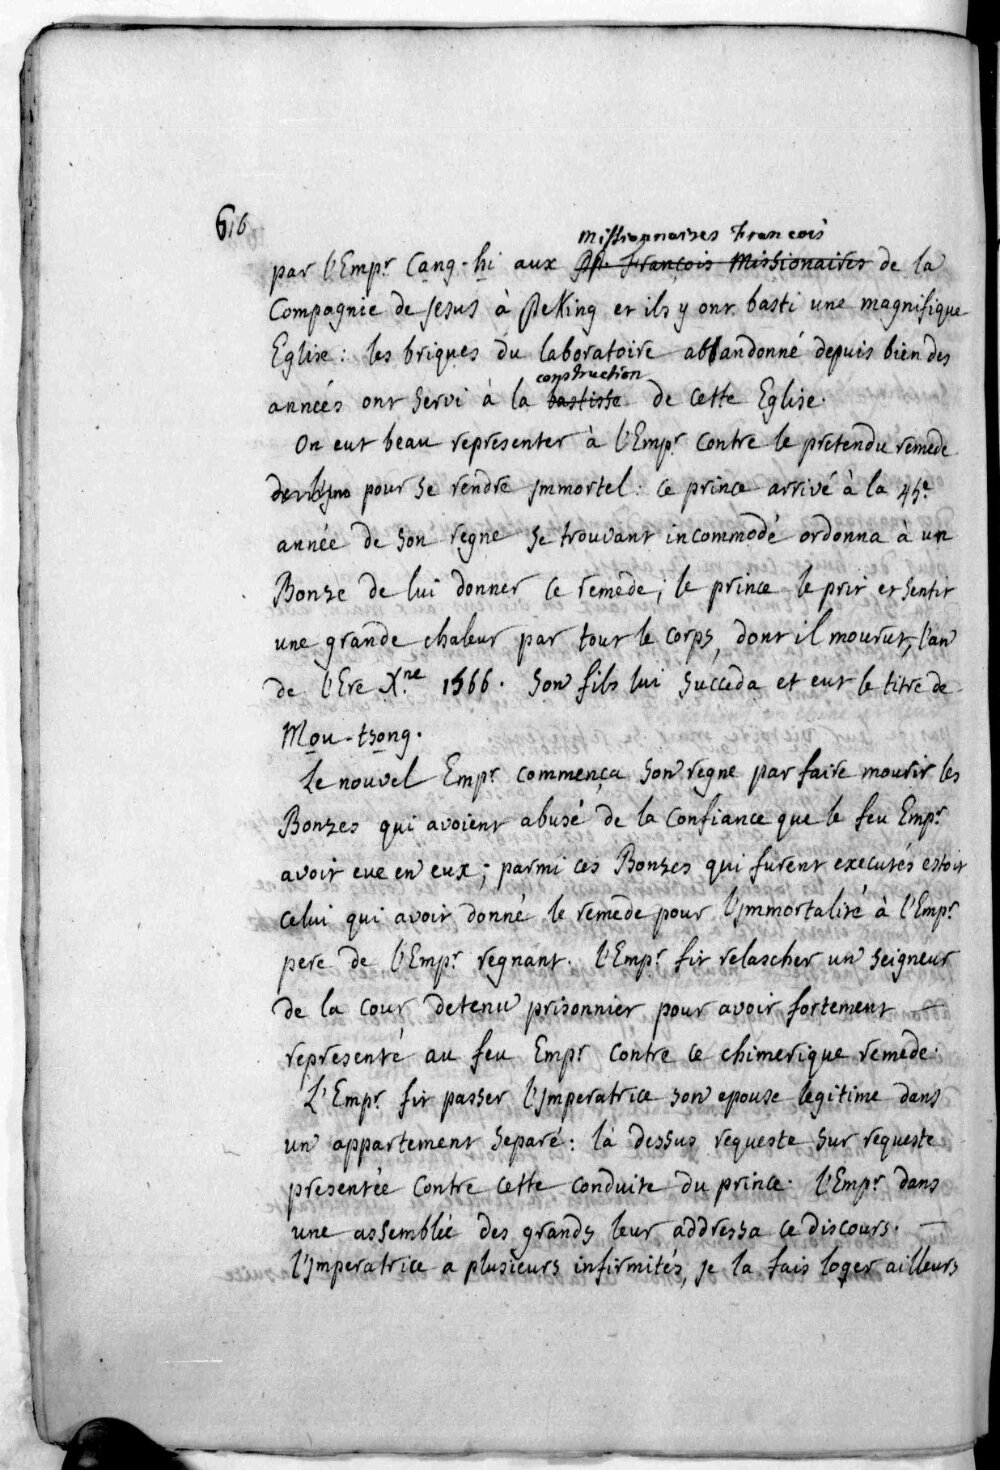 616
missionnaires Francois
par l'Empr. Cang-hi aux PP. François Missionaires de la
Compagnie de Jesus à PeKing et ils y ont basti une magnifique
Eglise : les briques du laboratoire abbandonné depuis bien des
construction
années ont servi à la bastisse de cette Eglise.
On eut beau representer à l'Empr. contre le pretendu remede
pour se rendre immortel : ce prince arrivé à la 45e.
année de son regne se trouvant incommodé ordonna à un
Bonze de lui donner ce remede ; le prince le prit et sentit
une grande chaleur par tout le corps, dont il mourut, l'an
de l'Ere Xne. 1566. Son fils lui succeda et eut le titre de
Mou-tsong.
Le nouvel Empr. commença son regne par faire mourir les
Bonzes qui avoient abusé de la confiance que le feu Empr.
avoit eue en eux ; parmi ces Bonzes qui furent executés estoit
celui qui avoit donné le remede pour l'immortalité à l'Empr.
pere de l'Empr. regnant. l'Empr. fit relascher un seigneur
de la cour detenu prisonnier pour avoir fortement —
representé au feu Empr. contre ce chimerique remede.
L'Empr. fit passer l'imperatrice son epouse legitime dans
un appartement separé : là dessus requeste sur requeste
presentée contre cette conduite du prince. l'Empr. dans
une assemblée des grands leur addressa ce discours. —
l'imperatrice a plusieurs infirmités, je la fais loger ailleurs